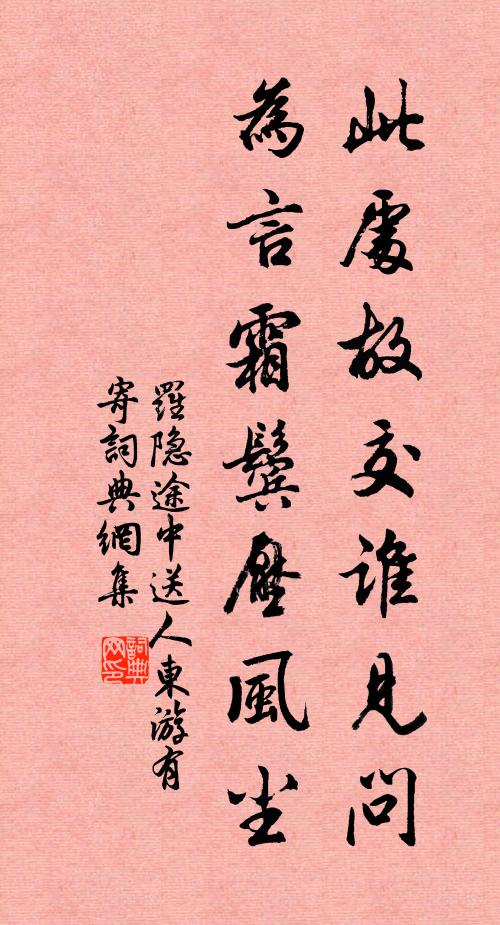 此處故交誰見問
為言霜鬢壓風塵
羅隐途中送人東游有
寄詞典網集
詞典
网印